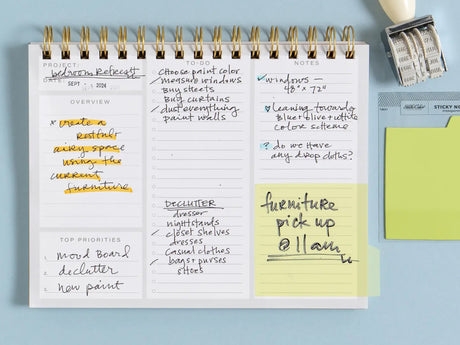 PROJECT: bedroom Refresh
DATE: SEPT 21 2024
OVERVIEW
* create a
restful
airy space
using the
current
furniture
TOP PRIORITIES
1. mood board
2. declutter
3. new paint
TO-DO
choose paint color
✓ measure windows
buy sheets
buy curtains
✓ dust everything
paint walls
DECLUTTER
dresser
nightstands
✓ closet shelves
dresses
casual clothes
✓ bags + purses
shoes
NOTES
windows —
48" x 72"
leaning towards
blue + olive + white
color scheme
? do we have
any drop cloths?
furniture
pick up
@ 11am
STICKY NOTE